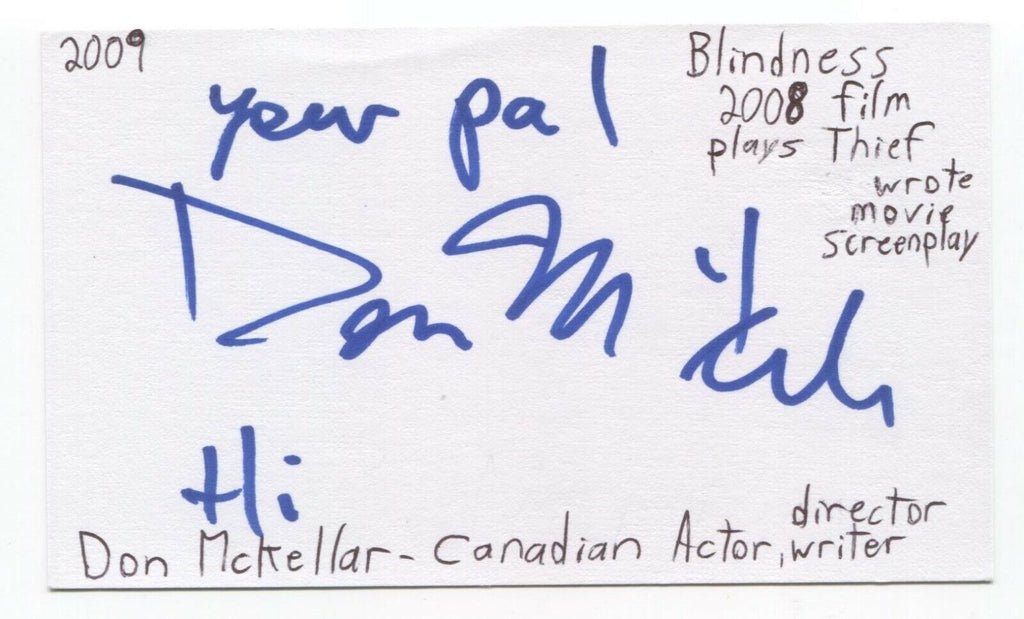 2009
Blindness
2008 film
plays Thief
wrote
movie
screenplay
your pal
Don McKellar
Hi
director
Don McKellar - Canadian Actor, writer